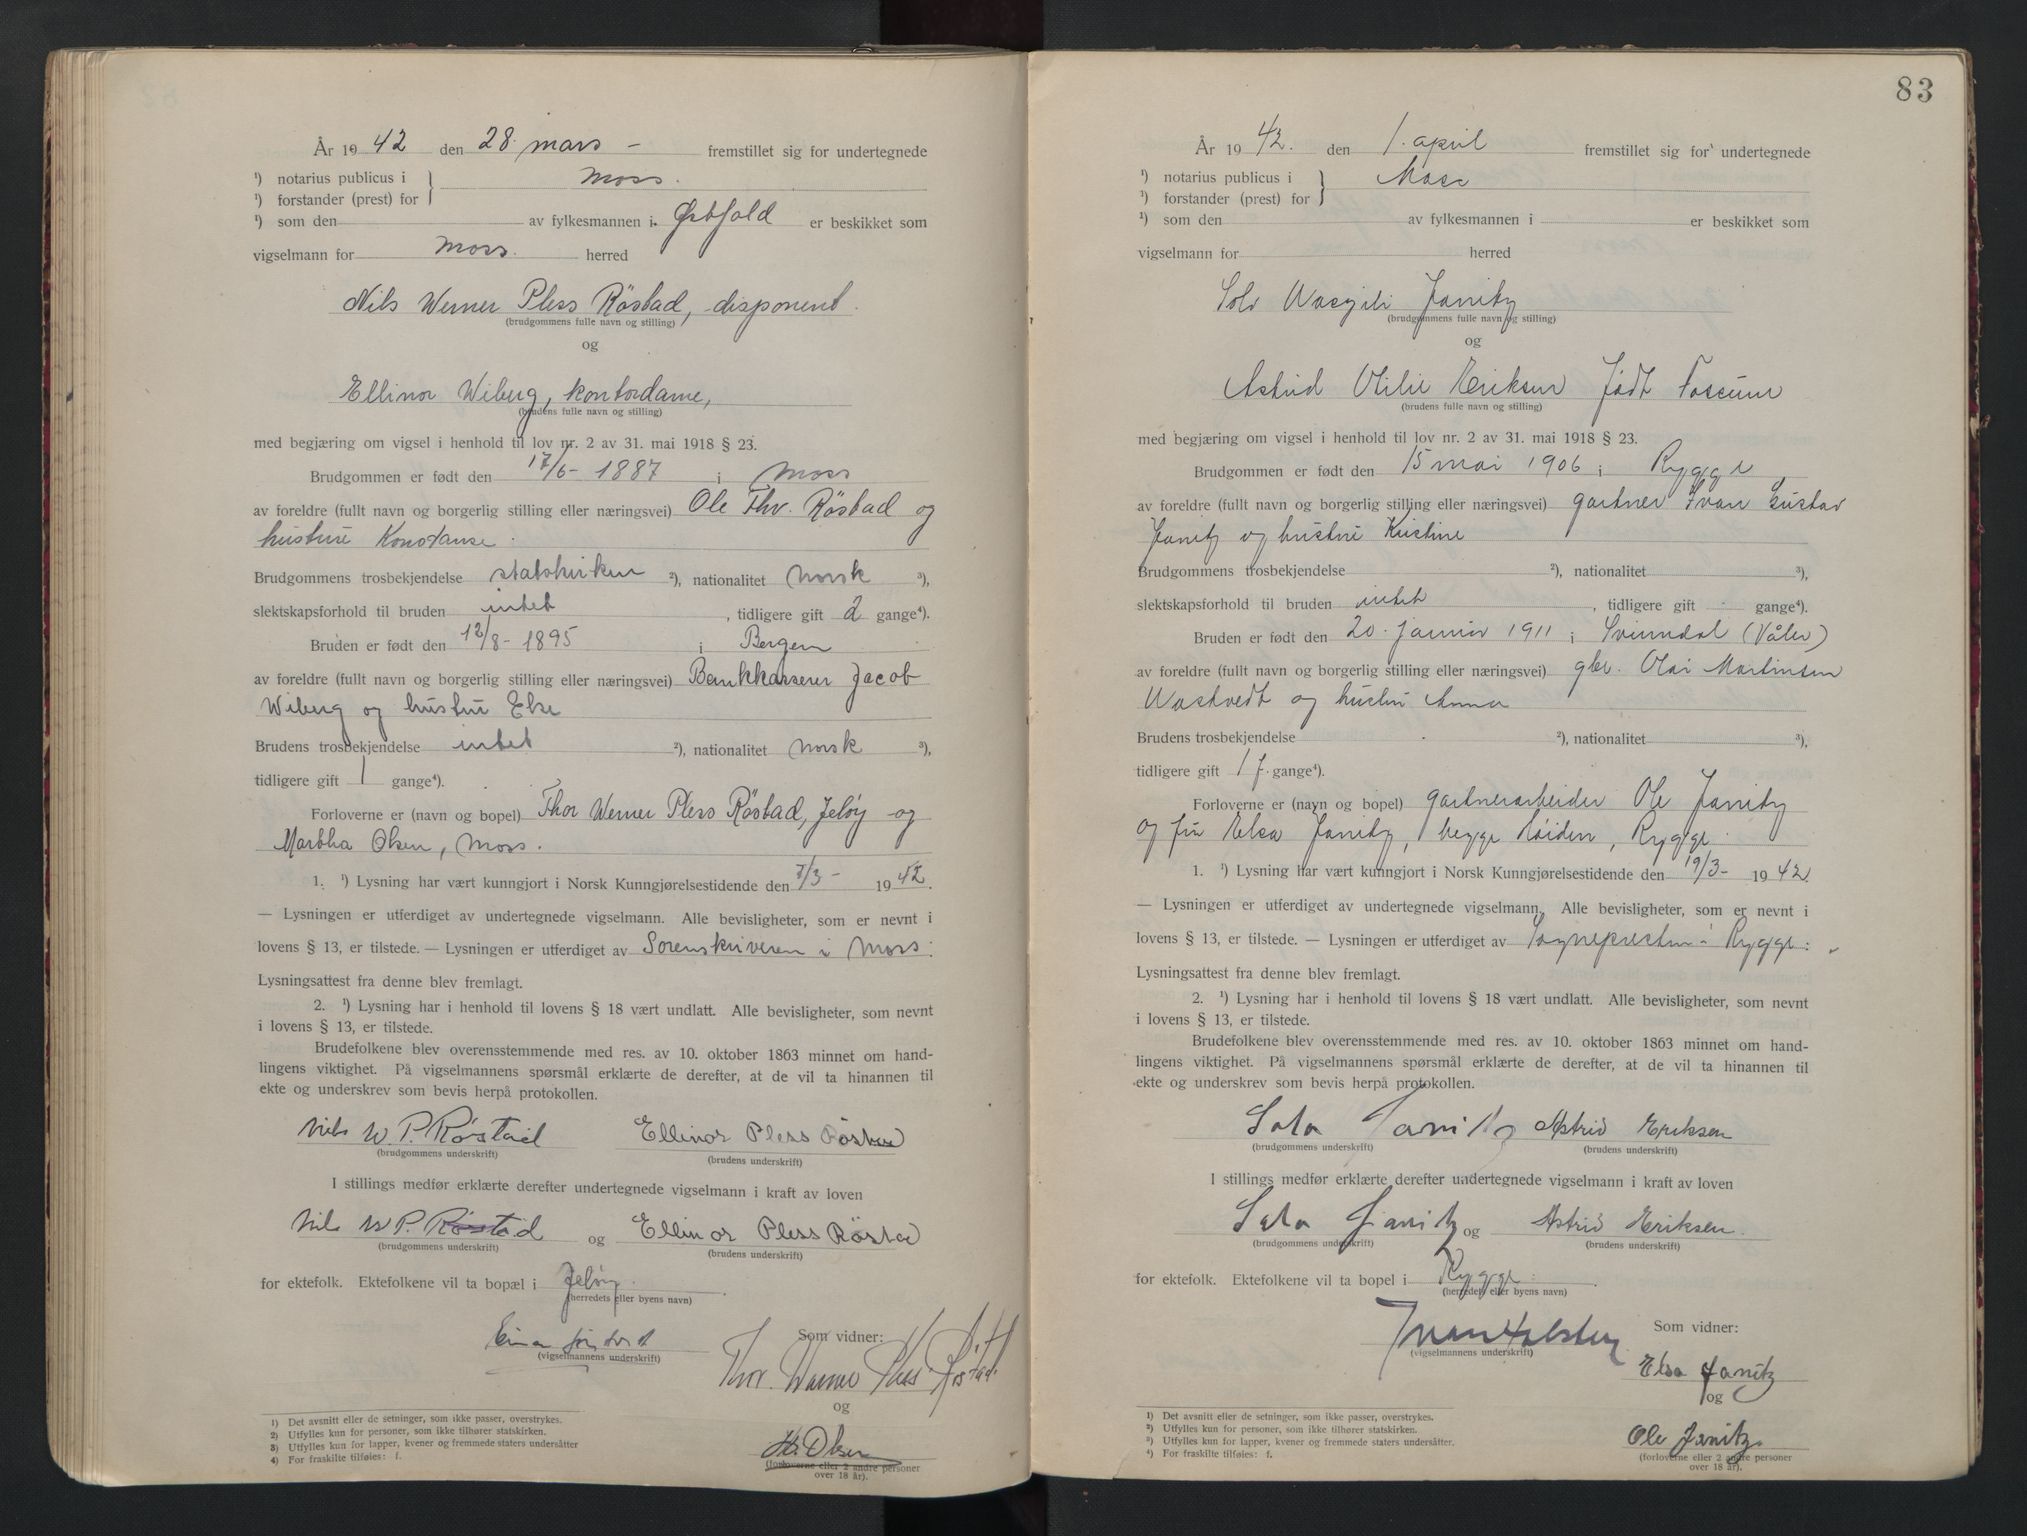 År 1942 den 28. mars – fremstillet sig for undertegnede
¹) notarius publicus i } Moss.
¹) forstander (prest) for
¹) som den av fylkesmannen i Østfold er beskikket som
vigselmann for Moss. herred
Nils Werner Pless Röstad, disponent.
(brudgommens fulle navn og stilling)
og
Ellinor Wiberg, kontordame,
(brudens fulle navn og stilling)
med begjæring om vigsel i henhold til lov nr. 2 av 31. mai 1918 § 23.
Brudgommen er født den 17/6 - 1887 i Moss
av foreldre (fullt navn og borgerlig stilling eller næringsvei) Ole Thv. Röstad og
hustru Konstanse.
Brudgommens trosbekjendelse statskirken ²), nationalitet norsk ³),
slektskapsforhold til bruden intet, tidligere gift 2 gange⁴).
Bruden er født den 12/8 - 1895 i Bergen
av foreldre (fullt navn og borgerlig stilling eller næringsvei) Bankkasserer Jacob
Wiberg og hustru Else
Brudens trosbekjendelse intet ²), nationalitet norsk ³),
tidligere gift 1 gange⁴).
Forloverne er (navn og bopel) Thor Werner Pless Röstad, Jeløy og
Martha Olsen, Moss.
1. ¹) Lysning har vært kunngjort i Norsk Kunngjørelsestidende den 7/3 - 1942.
— Lysningen er utferdiget av undertegnede vigselmann. Alle bevisligheter, som er nevnt i
lovens § 13, er tilstede. — Lysningen er utferdiget av Sorenskriveren i Moss:
Lysningsattest fra denne blev fremlagt.
2. ¹) Lysning har i henhold til lovens § 18 vært undlatt. Alle bevisligheter, som nevnt
i lovens § 13, er tilstede.
Brudefolkene blev overensstemmende med res. av 10. oktober 1863 minnet om hand-
lingens viktighet. På vigselmannens spørsmål erklærte de derefter, at de vil ta hinannen til
ekte og underskrev som bevis herpå protokollen.
Nils W. P. Röstad Ellinor Pless Röstad
(brudgommens underskrift) (brudens underskrift)
I stillings medfør erklærte derefter undertegnede vigselmann i kraft av loven
Nils W P. Röstad og Ellinor Pless Röstad
(brudgommens underskrift) (brudens underskrift)
for ektefolk. Ektefolkene vil ta bopæl i Jeløy.
(herredets eller byens navn)
Som vidner:
Thor. Werner Pless Röstad.
(vigselmannens underskrift)
og
Olsen
(forloverne eller 2 andre personer
over 18 år).
1) Det avsnitt eller de setninger, som ikke passer, overstrykes.
2) Utfylles kun for personer, som ikke tilhører statskirken.
3) Utfylles kun for lapper, kvener og fremmede staters undersåtter
4) For fraskilte tilføies: f.
83
År 1942. den 1. april fremstillet sig for undertegnede
¹) notarius publicus i } Moss
¹) forstander (prest) for
¹) som den av fylkesmannen i er beskikket som
vigselmann for herred
Janitz
(brudgommens fulle navn og stilling)
og
Astrid Otilie Eriksen født Fossum
(brudens fulle navn og stilling)
med begjæring om vigsel i henhold til lov nr. 2 av 31. mai 1918 § 23.
Brudgommen er født den 15 mai 1906 i Rygge
av foreldre (fullt navn og borgerlig stilling eller næringsvei) gartner Ivan Gustav
Janitz og hustru Kristine
Brudgommens trosbekjendelse ²), nationalitet ³),
slektskapsforhold til bruden intet, tidligere gift gange⁴).
Bruden er født den 20. januar 1911 i Svinndal (Våler)
av foreldre (fullt navn og borgerlig stilling eller næringsvei) gbr. Olai Martinsen
og hustru Anna
Brudens trosbekjendelse ²), nationalitet ³),
tidligere gift 1 f. gange⁴).
Forloverne er (navn og bopel) gartnerarbeider Ole Janitz
og fru Elsa Janitz, begge Rygge.
1. ¹) Lysning har vært kunngjort i Norsk Kunngjørelsestidende den 19/3 - 1942.
— Lysningen er utferdiget av undertegnede vigselmann. Alle bevisligheter, som er nevnt i
lovens § 13, er tilstede. — Lysningen er utferdiget av Sogneprесten i Rygge:
Lysningsattest fra denne blev fremlagt.
2. ¹) Lysning har i henhold til lovens § 18 vært undlatt. Alle bevisligheter, som nevnt
i lovens § 13, er tilstede.
Brudefolkene blev overensstemmende med res. av 10. oktober 1863 minnet om hand-
lingens viktighet. På vigselmannens spørsmål erklærte de derefter, at de vil ta hinannen til
ekte og underskrev som bevis herpå protokollen.
Janitz Astrid Eriksen
(brudgommens underskrift) (brudens underskrift)
I stillings medfør erklærte derefter undertegnede vigselmann i kraft av loven
Janitz og Astrid Eriksen.
(brudgommens underskrift) (brudens underskrift)
for ektefolk. Ektefolkene vil ta bopel i Rygge.
(herredets eller byens navn)
Som vidner:
(vigselmannens underskrift)
Elsa Janitz
og
Ole Janitz
(forloverne eller 2 andre personer
over 18 år).
1) Det avsnitt eller de setninger, som ikke passer, overstrykes.
2) Utfylles kun for personer, som ikke tilhører statskirken.
3) Utfylles kun for lapper, kvener og fremmede staters undersåtter.
4) For fraskilte tilføies: f.